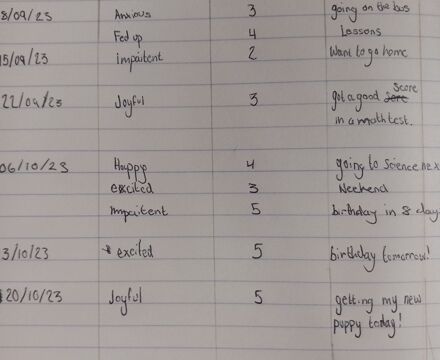 8/09/23 Anxious 3 going on the bus
Fed up 4 Lessons
15/09/23 impaitent 2 Want to go home
22/09/23 Joyful 3 got a good score
in a math test.
06/10/23 Happy 4 going to Science
excited 3 Weekend
impaitent 5 birthday in 8 day
3/10/23 excited 5 birthday tomorrow!
20/10/23 Joyful 5 getting my new
puppy today!